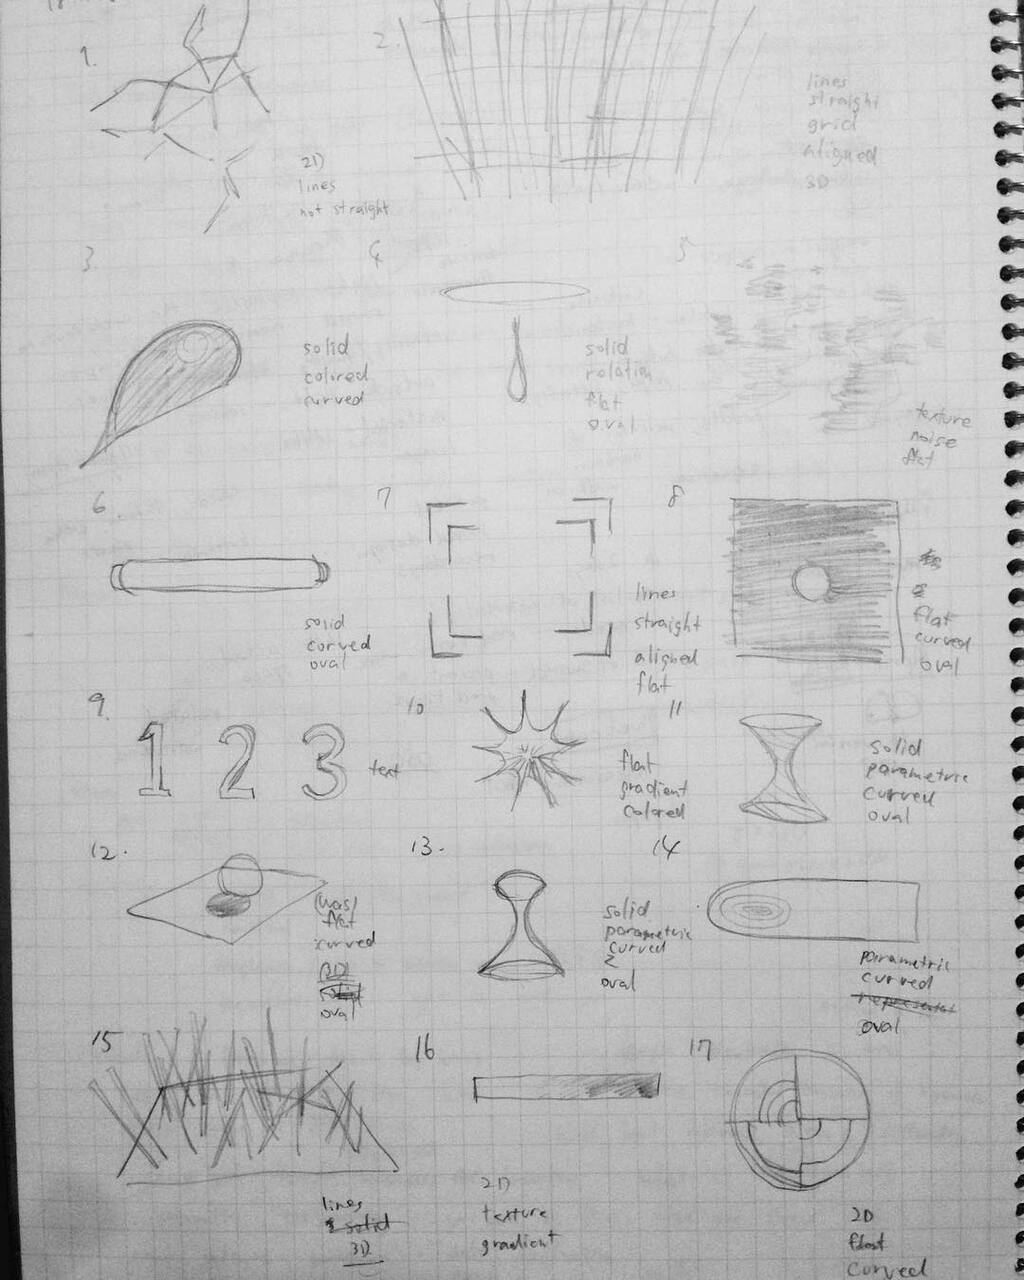 1.
2.
2D
lines
not straight
lines
straight
grid
aligned
3D
3
4
5
solid
colored
curved
solid
rotation
flat
oval
texture
noise
flat
6.
7
8
solid
curved
oval
lines
straight
aligned
flat
flat
curved
oval
9.
10
11
1 2 3
text
flat
gradient
colored
solid
parametric
curved
oval
12.
13.
14
(has)
flat
curved
3D
oval
solid
parametric
curved
2
oval
parametric
curved
oval
15
16
17
lines
solid
3D
2D
texture
gradient
2D
flat
curved